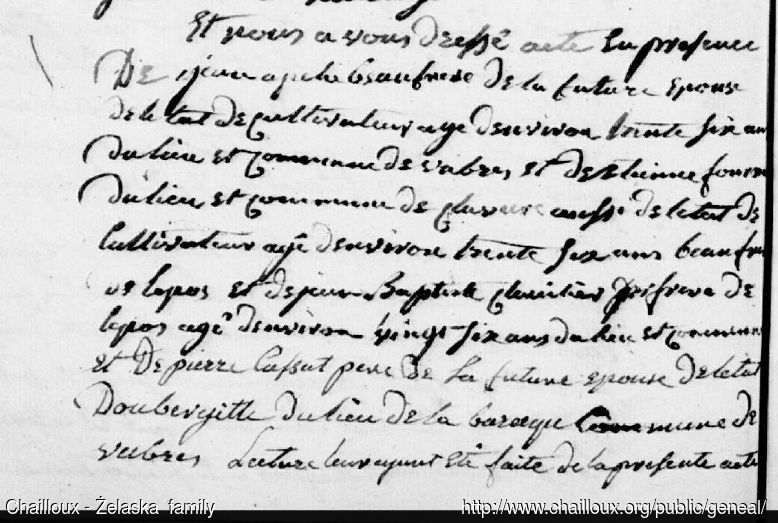 Et nous a vons dressé acte En presence
De jean apcha beaufrere de la future Epouse
de letat de cultivateur agé denviron trente six ans
du lieu et commune de vabres et de Etienne
du lieu et commune de aussi de letat de
Cultivateur agé denviron trente six ans beaufre
re lepos et de jean Baptiste frere de
lepos agé denviron vingt six ans du lieu et commune
et De pierre Cussat pere de la future epouse de letat
Daubergiste du lieu de la baraque Commune de
vabres Lecture leur ayant Eté faite de la presente acte
Chailloux - Żelaska family
http://www.chailloux.org/public/geneal/